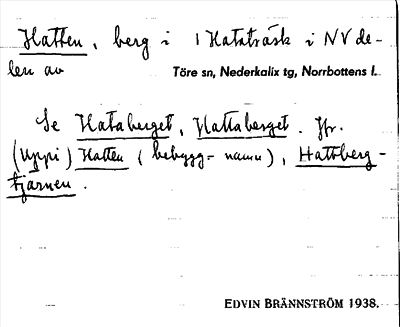 Hatten, berg i Hataträsk i NV de-
len av Töre sn, Nederkalix tg, Norrbottens l.
Se Hataberget, Hattaberget. Jfr.
(Uppi) Hatten (bebygg- namn), Hattberg-
tjärnen.
EDVIN BRÄNNSTRÖM 1938.